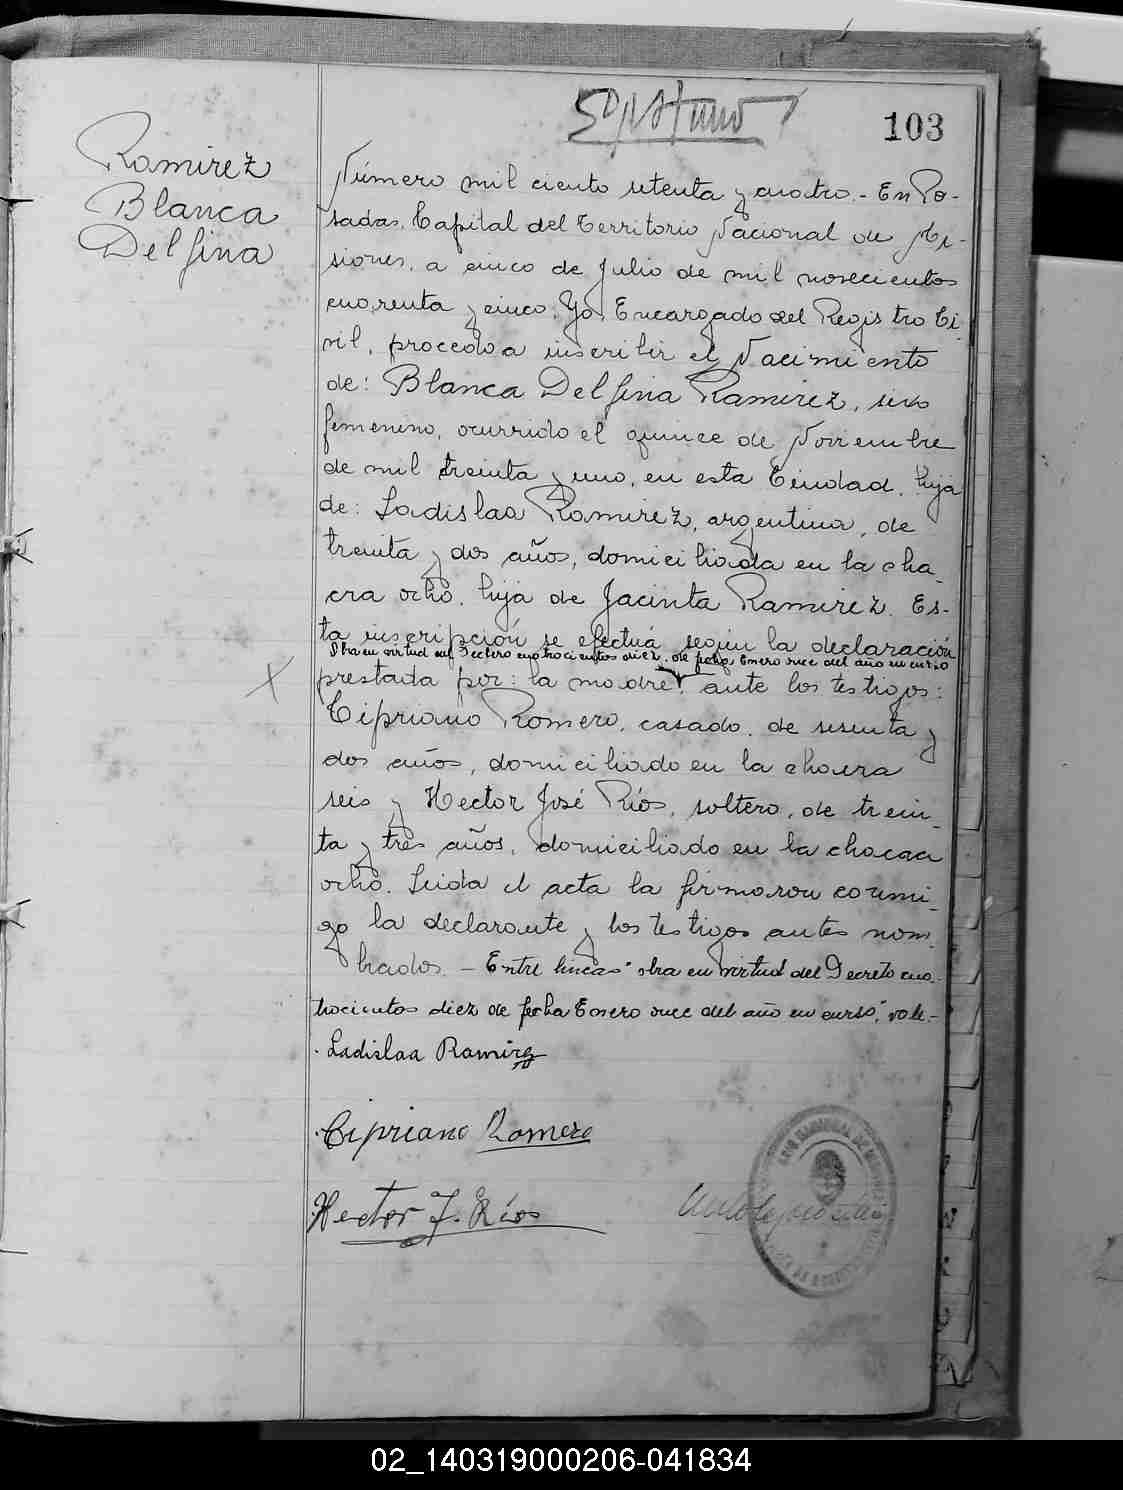 103
Ramirez
Blanca
Delfina
Número mil ciento setenta y cuatro.- En Po-
sadas, Capital del Territorio Nacional de Mi-
siones, a cinco de Julio de mil novecientos
cuarenta y cinco. Yo, Encargado del Registro Ci-
vil, procedo a inscribir el Nacimiento
de: Blanca Delfina Ramirez, sexo
femenino, ocurrido el quince de Noviembre
de mil treinta y uno, en esta Ciudad, hija
de: Ladislaa Ramirez, argentina, de
treinta y dos años, domiciliada en la cha-
cra ocho, hija de Jacinta Ramirez. Es-
ta inscripción se efectúa según la declaración
obra en virtud del Decreto cuatrocientos diez, de fecha Enero once del año en curso
prestada por: la madre, ante los testigos:
Cipriano Romero, casado, de sesenta y
dos años, domiciliado en la chacra
seis y Hector José Ríos, soltero, de trein-
ta y tres años, domiciliado en la chacra
ocho. Leida el acta la firmaron conmi-
go la declarante y los testigos antes nom-
brados. - Entre lineas "obra en virtud del Decreto cua-
trocientos diez de fecha Enero once del año en curso", vale.-
Ladislaa Ramirez
Cipriano Romero
Hector J. Ríos
02_140319000206-041834